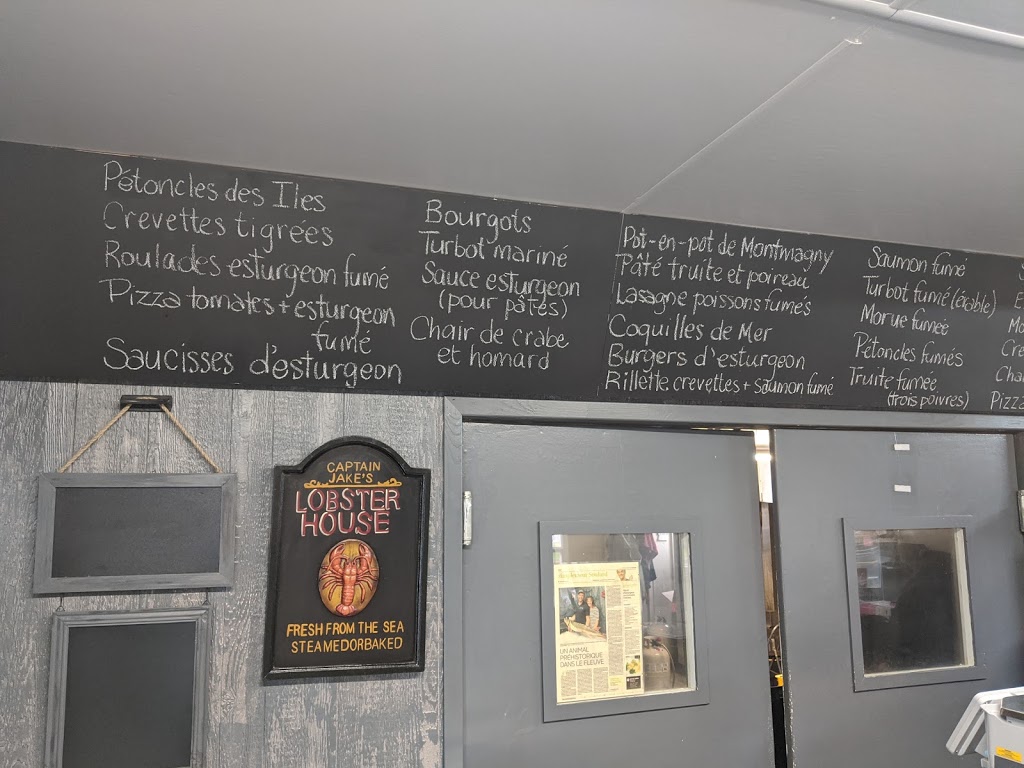 Pétoncles des Iles
Crevettes tigrées
Roulades esturgeon fumé
Pizza tomates + esturgeon
fumé
Saucisses d'esturgeon
Bourgots
Turbot mariné
Sauce esturgeon
(pour pâtes)
Chair de crabe
et homard
Pot-en-pot de Montmagny
Pâté truite et poireau
Lasagne poissons fumés
Coquilles de Mer
Burgers d'esturgeon
Rillette crevettes + saumon fumé
Saumon fumé
Turbot fumé (érable)
Morue fumée
Pétoncles fumés
Truite fumée
(trois poivres)
Pizza
CAPTAIN
JAKE'S
LOBSTER
HOUSE
FRESH FROM THE SEA
STEAMEDORBAKED
UN ANIMAL
PRÉHISTORIQUE
DANS LE FLEUVE